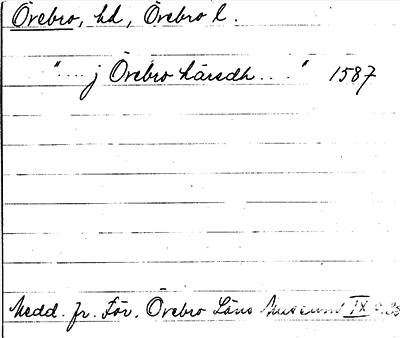 Örebro, hd, Örebro l.
".... j Örebro häredh...." 1587
Medd. fr. För. Örebro Läns Museum IX